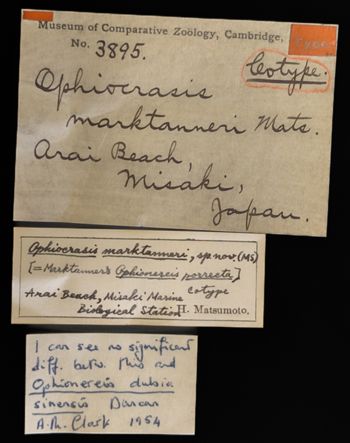 Museum of Comparative Zoölogy, Cambridge,
No. 3895.
Cotype.
Ophiocrasis
marktanneri Mats.
Arai Beach,
Misaki,
Japan.
Ophiocrasis marktanneri, sp. nov. (MS)
[= Marktanner's Ophionereis porrecta]
Cotype
Arai Beach, Misaki Marine
Biological Station H. Matsumoto.
I can see no significant
diff. betw. this and
Ophionereis dubia
sinensis Duncan
A.M. Clark 1954